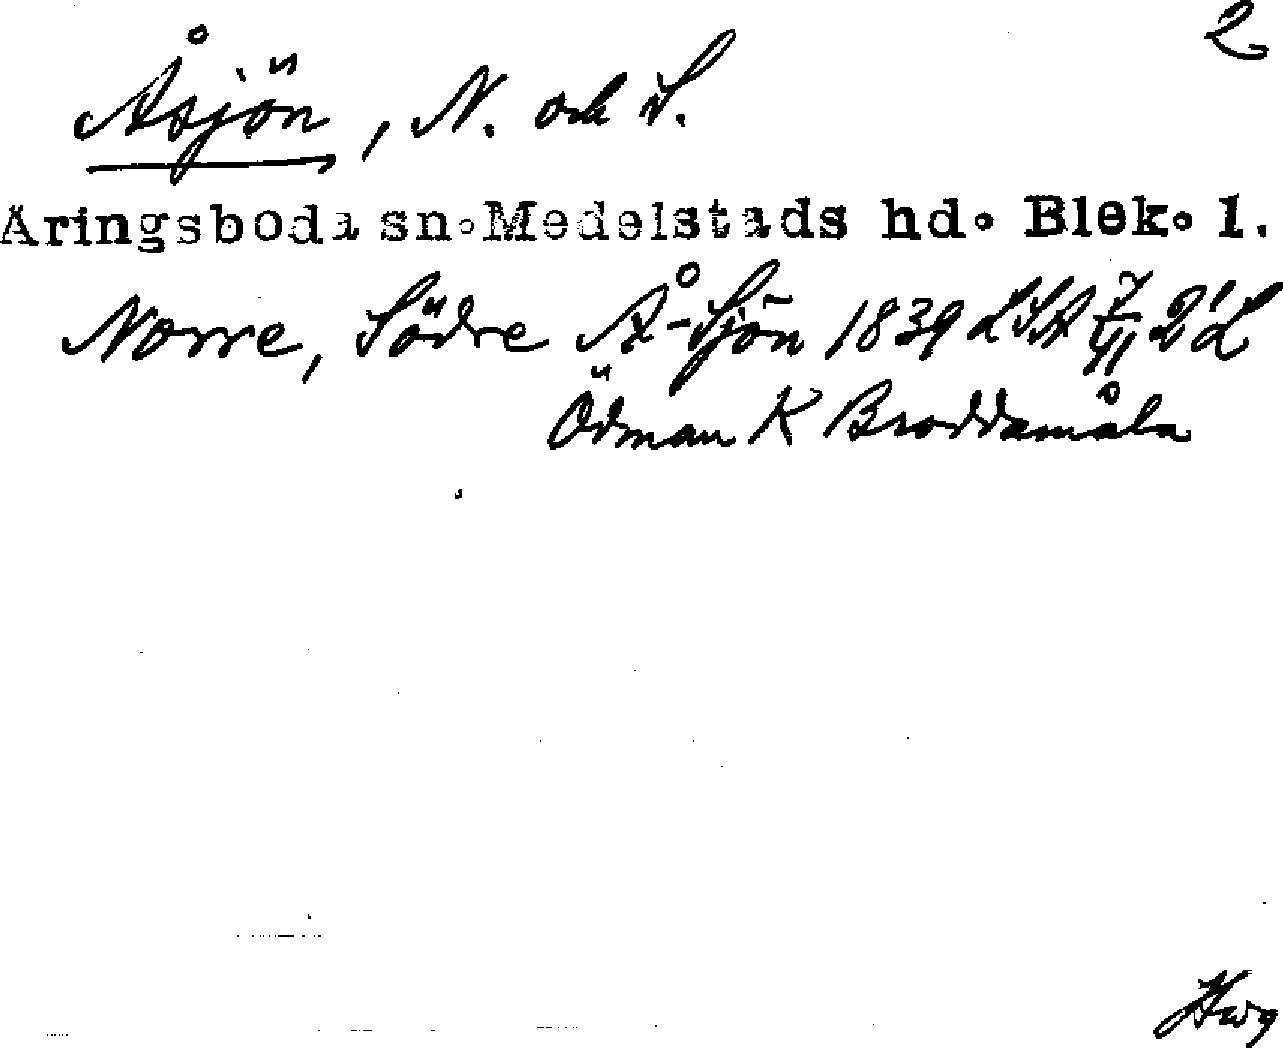 2
Åsjön, N. och S.
Äringsboda sn. Medelstads hd. Blek. l.
Norre, Södre Å-Sjön 1839 LSA
Ödman K Broddamåla